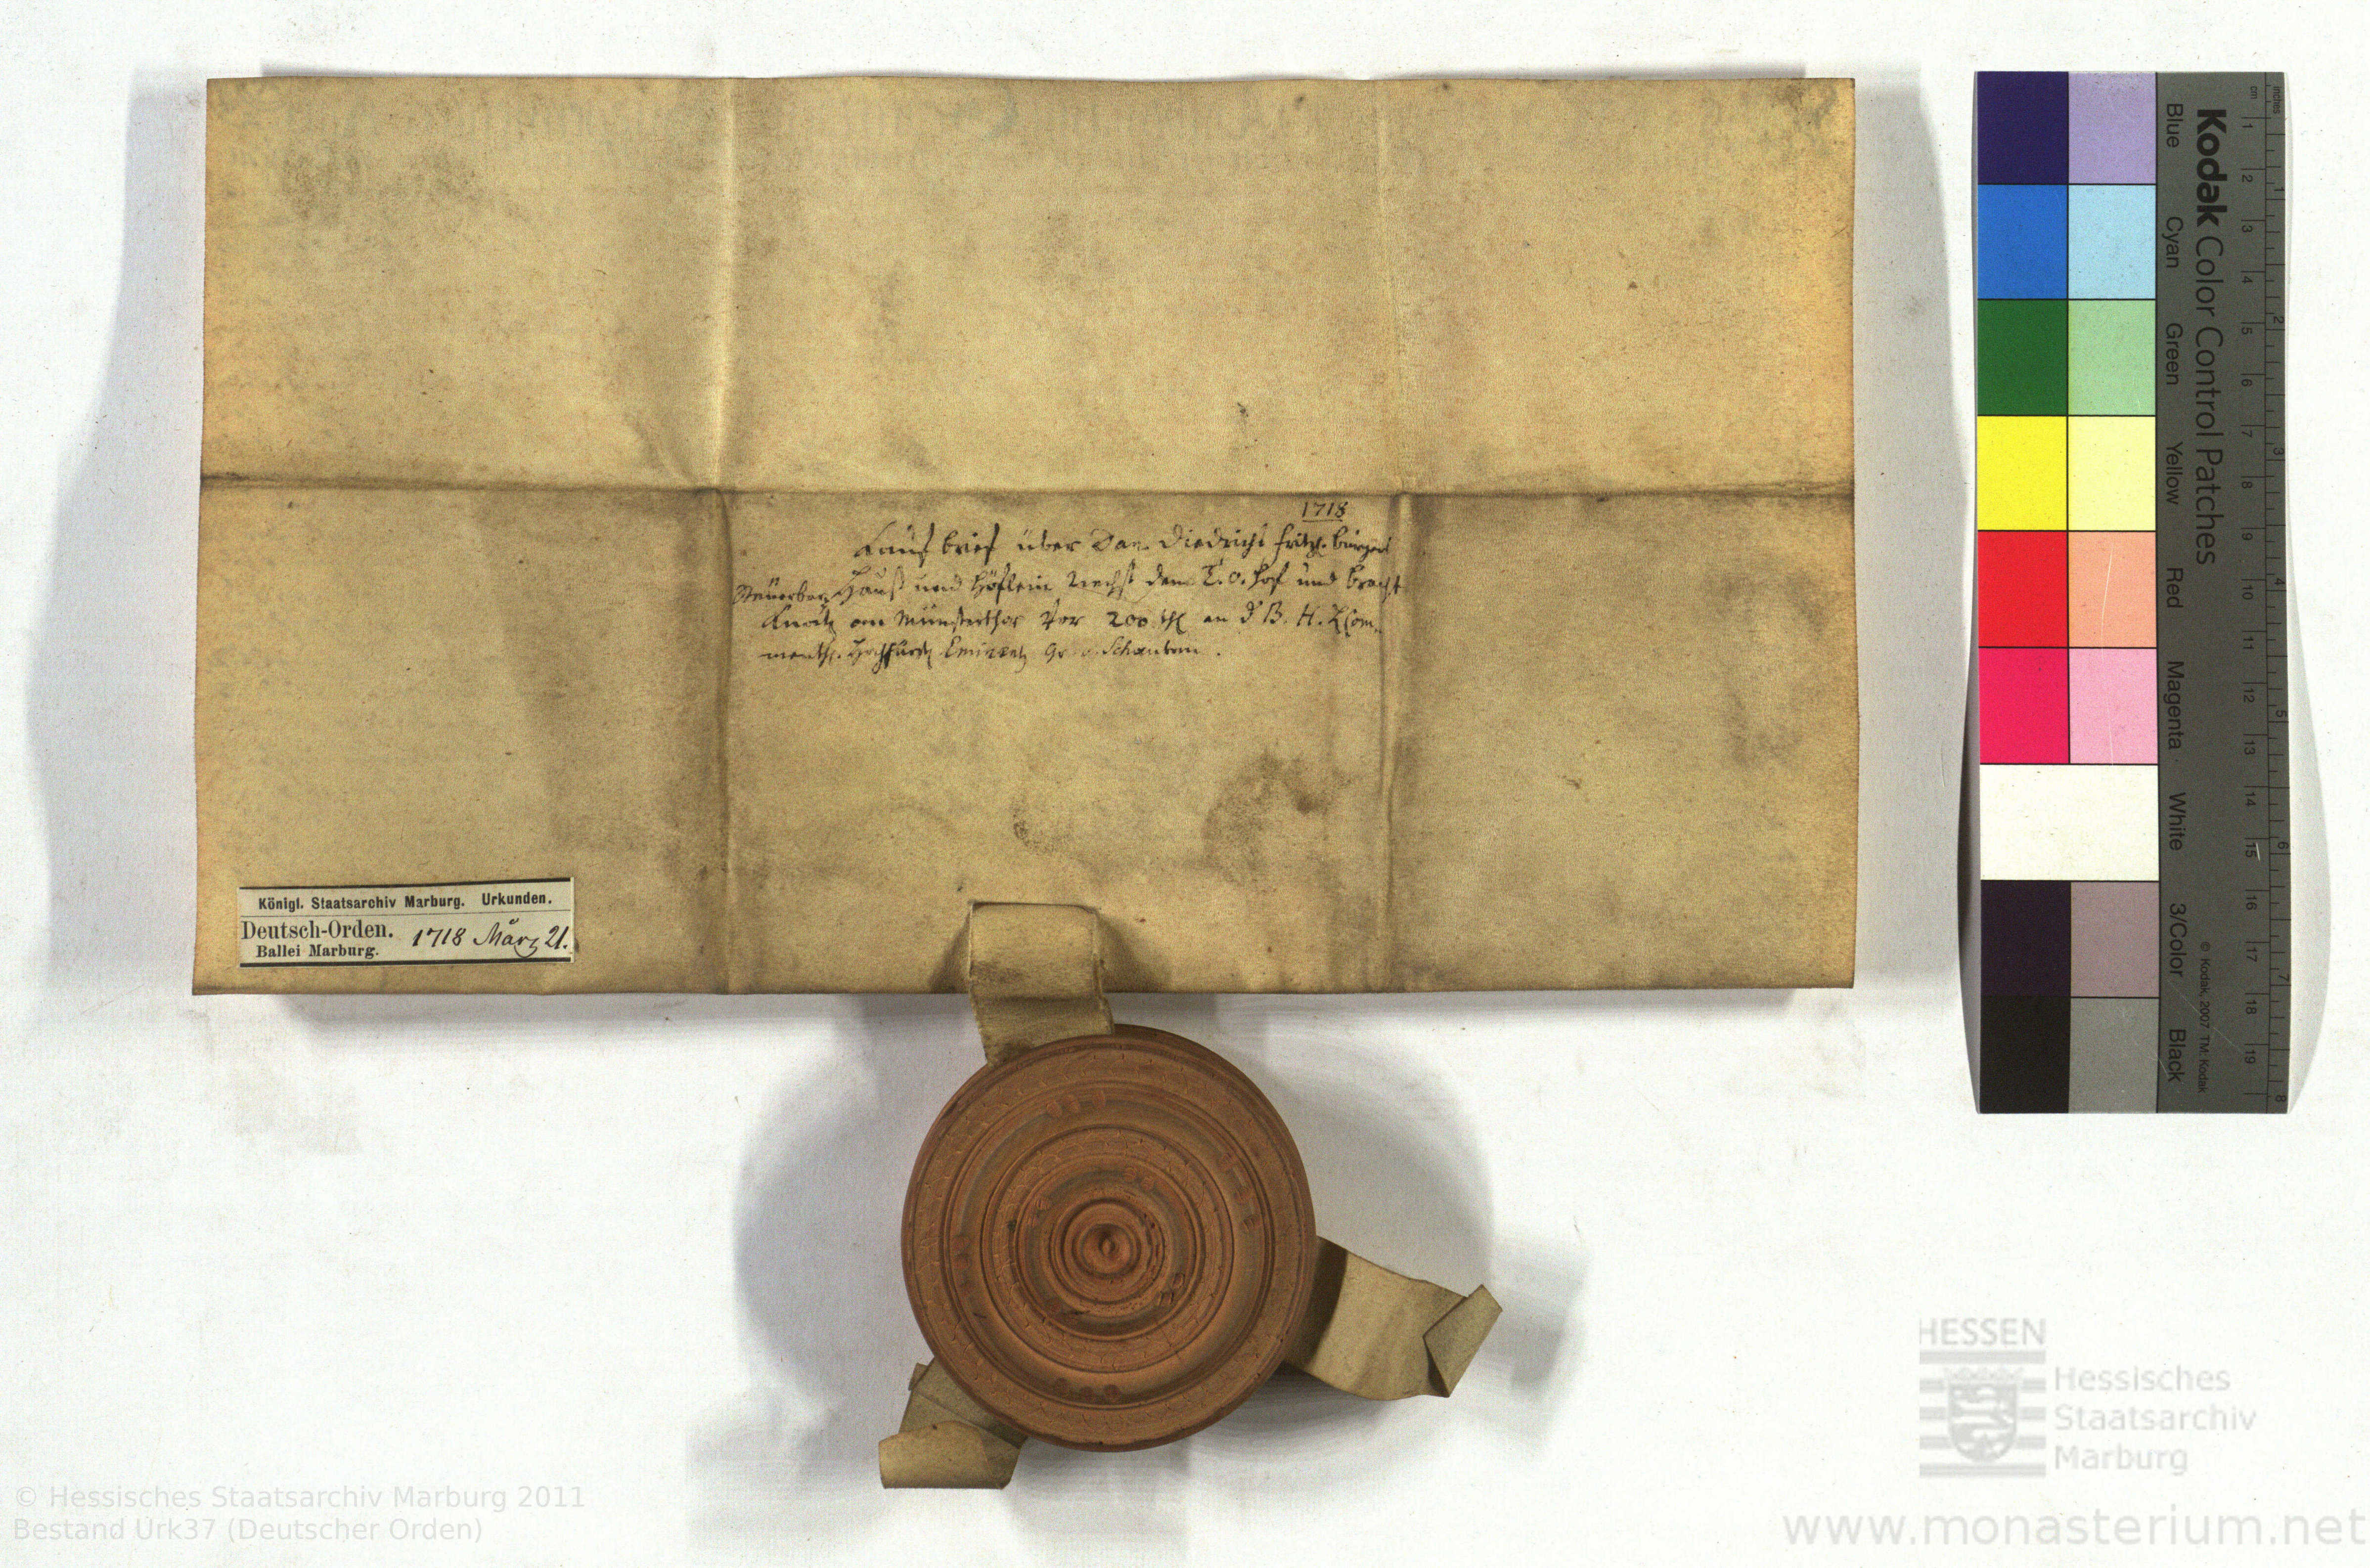 1718
Kauf brief über Dan. Diedrich fritz. bürgerl
Haus und Höflein nechst dem T. O. hof und
am Münsterthor vor 200 an B. H.
Eminentz Gr. v. Schönborn.
Königl. Staatsarchiv Marburg. Urkunden.
Deutsch-Orden. 1718 März 21.
Ballei Marburg.
Kodak Color Control Patches
Blue Cyan Green Yellow Red Magenta White 3/Color Black
© Kodak, 2007 TM: Kodak
cm 1 2 3 4 5 6 7 8 9 10 11 12 13 14 15 16 17 18 19
inches 1 2 3 4 5 6 7 8
HESSEN
Hessisches
Staatsarchiv
Marburg
© Hessisches Staatsarchiv Marburg 2011
Bestand Urk37 (Deutscher Orden)
www.monasterium.net